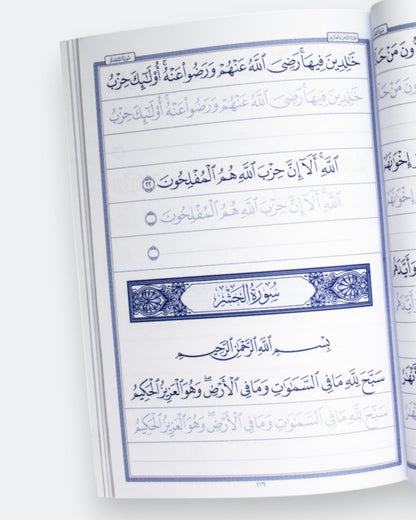 خَٰلِدِينَ فِيهَا ۚ رَضِيَ ٱللَّهُ عَنْهُمْ وَرَضُوا۟ عَنْهُ ۚ أُو۟لَٰٓئِكَ حِزْبُ
خَٰلِدِينَ فِيهَا ۚ رَضِيَ ٱللَّهُ عَنْهُمْ وَرَضُوا۟ عَنْهُ ۚ أُو۟لَٰٓئِكَ حِزْبُ
ٱللَّهِ ۚ أَلَآ إِنَّ حِزْبَ ٱللَّهِ هُمُ ٱلْمُفْلِحُونَ ٢٢
ٱللَّهِ ۚ أَلَآ إِنَّ حِزْبَ ٱللَّهِ هُمُ ٱلْمُفْلِحُونَ
سُورَةُ الْحَشْرِ
بِسْمِ ٱللَّهِ ٱلرَّحْمَٰنِ ٱلرَّحِيمِ
سَبَّحَ لِلَّهِ مَا فِي ٱلسَّمَٰوَٰتِ وَمَا فِي ٱلْأَرْضِ ۖ وَهُوَ ٱلْعَزِيزُ ٱلْحَكِيمُ
سَبَّحَ لِلَّهِ مَا فِي ٱلسَّمَٰوَٰتِ وَمَا فِي ٱلْأَرْضِ ۖ وَهُوَ ٱلْعَزِيزُ ٱلْحَكِيمُ